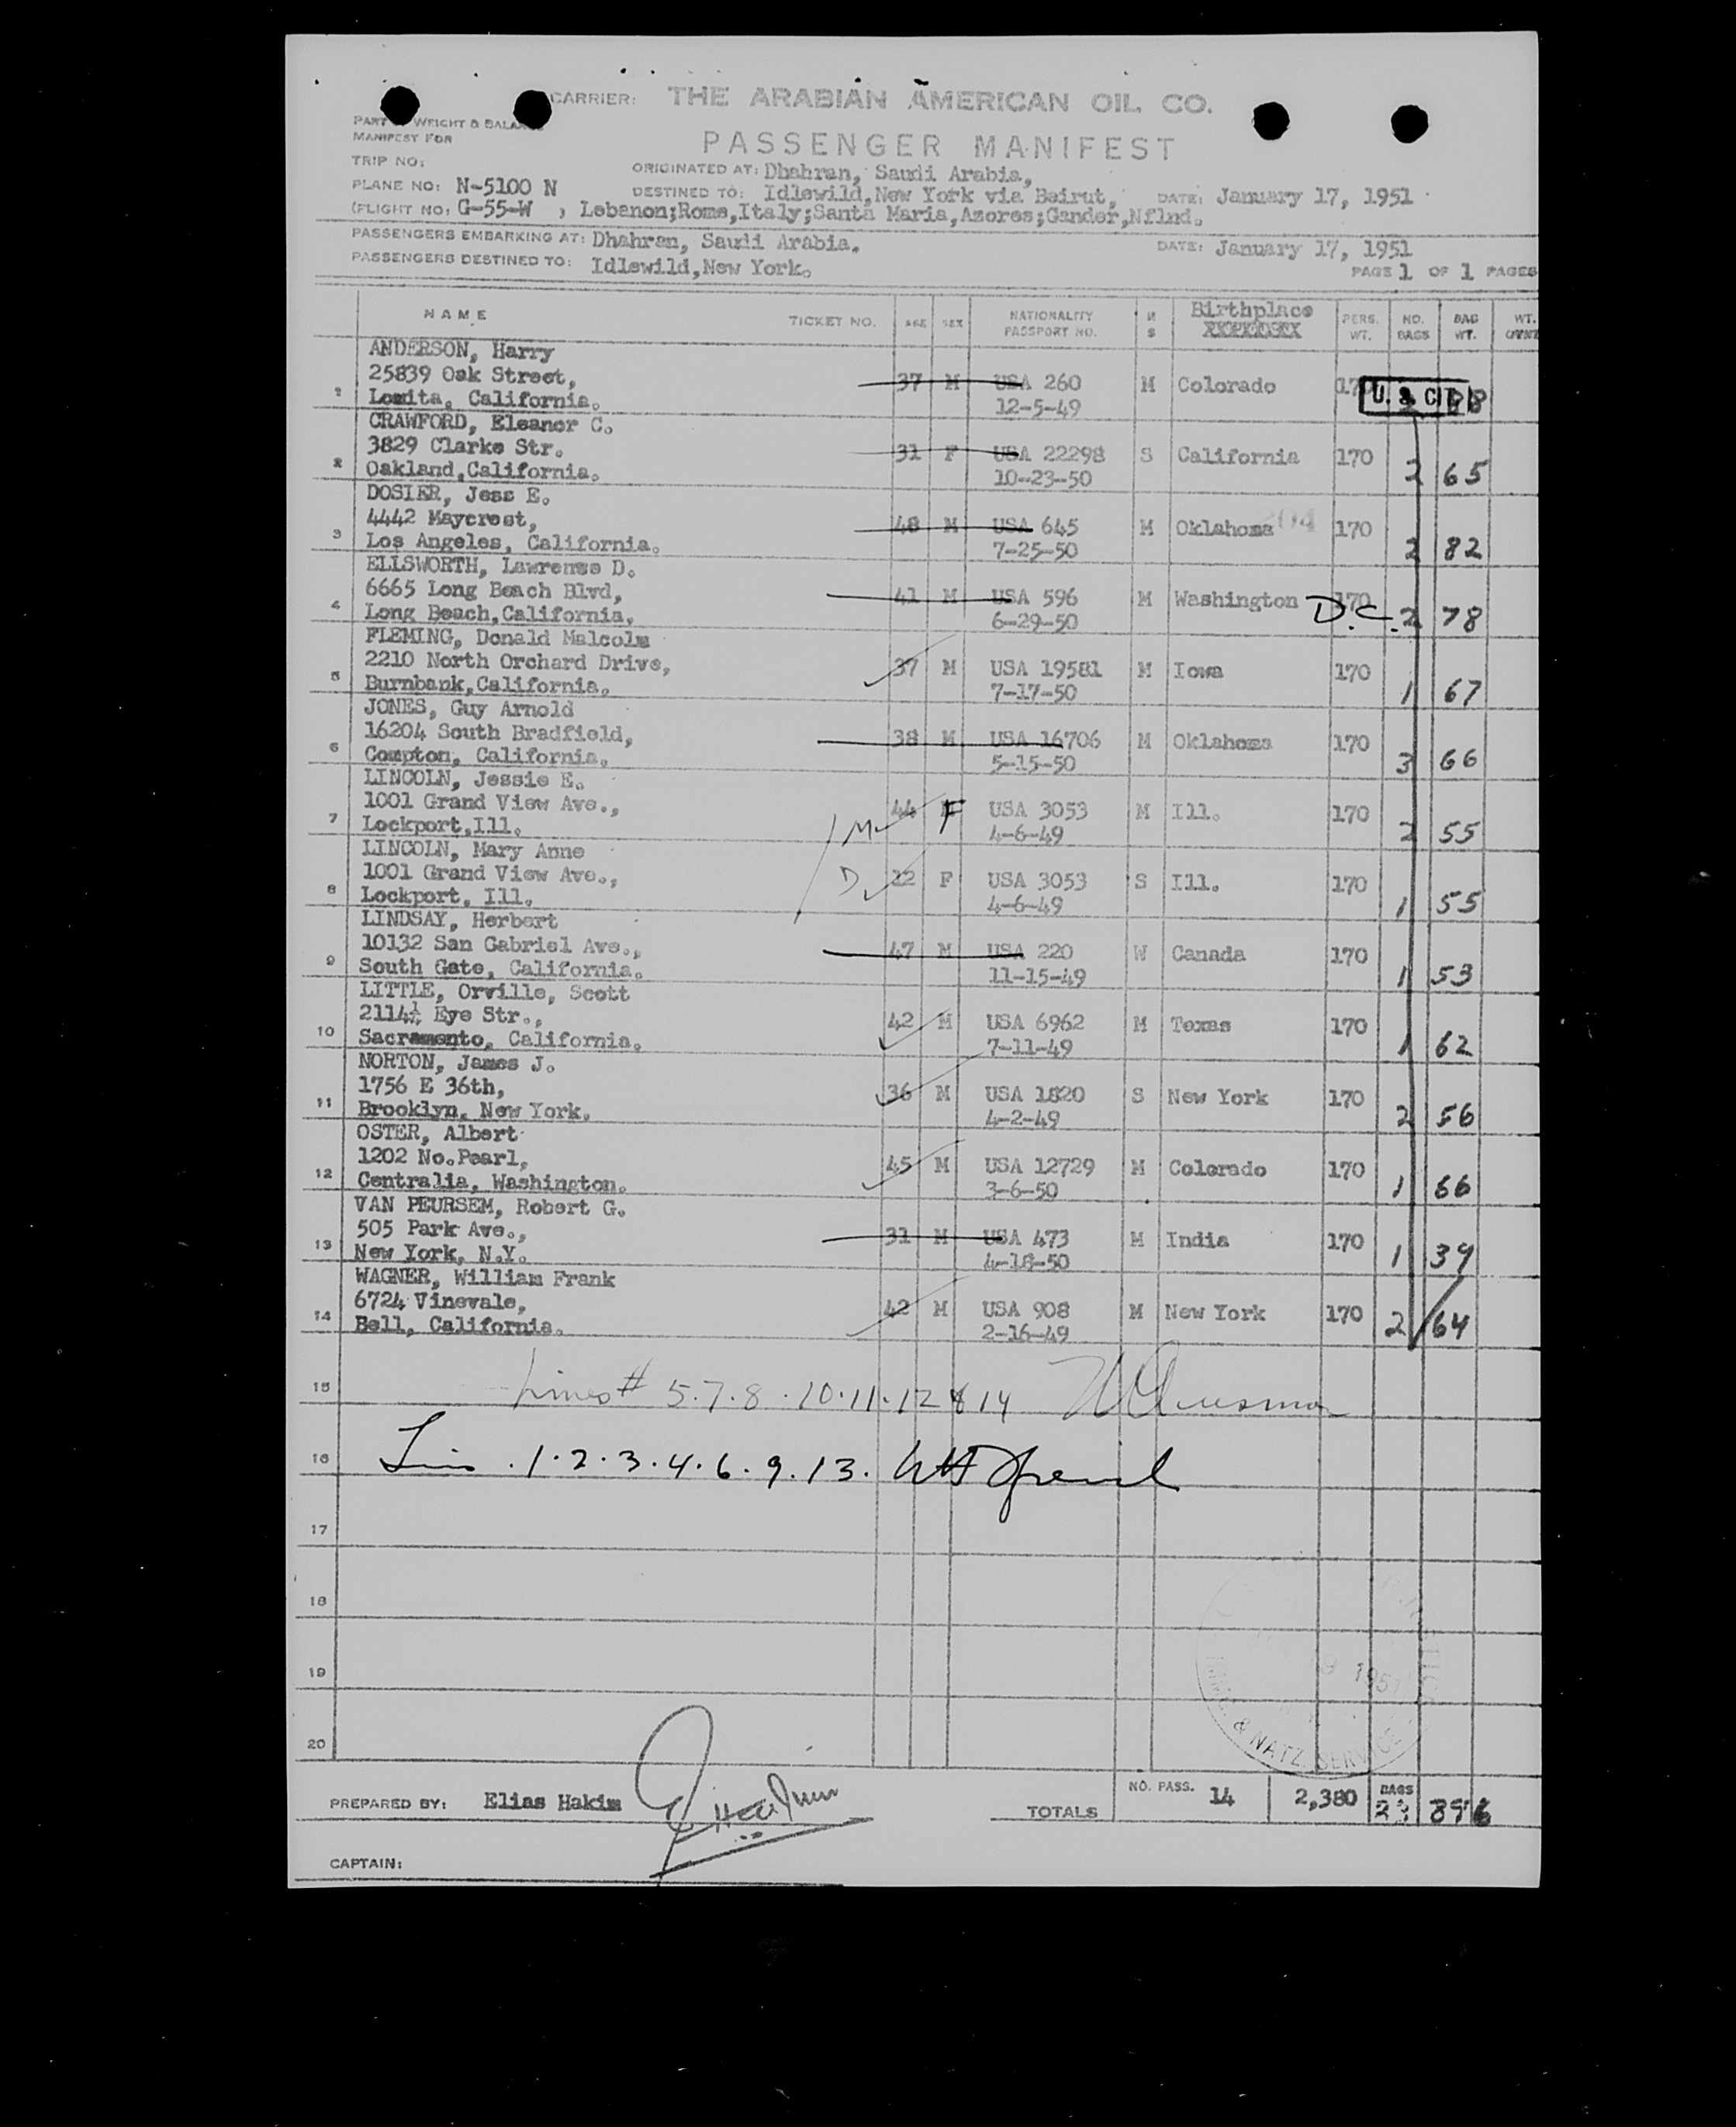 CARRIER: THE ARABIAN AMERICAN OIL CO.
PART WEIGHT & BALANCE
MANIFEST FOR
PASSENGER MANIFEST
TRIP NO:
ORIGINATED AT: Dhahran, Saudi Arabia,
PLANE NO: N-5100 N DESTINED TO: Idlewild,New York via Beirut, DATE: January 17, 1951
(FLIGHT NO: G-55-W , Lebanon;Rome,Italy;Santa Maria,Azores;Gander,Nflnd.
PASSENGERS EMBARKING AT: Dhahran, Saudi Arabia. DATE: January 17, 1951
PASSENGERS DESTINED TO: Idlewild,New York. PAGE 1 OF 1 PAGES
NAME TICKET NO. AGE SEX NATIONALITY PASSPORT NO. M S Birthplace XXXXXXXX PERS. WT. NO. BAGS BAG WT. WT.
ANDERSON, Harry
25839 Oak Street, 37 M USA 260 M Colorado U. S. CIT
1 Lomita, California. 12-5-49
CRAWFORD, Eleanor C.
3829 Clarke Str. 31 F USA 22298 S California 170 2 65
2 Oakland,California. 10-23-50
DOSIER, Jess E.
4442 Maycrest, 48 M USA 645 M Oklahoma 204 170 2 82
3 Los Angeles, California. 7-25-50
ELLSWORTH, Lawrense D.
6665 Long Beach Blvd, 41 M USA 596 M Washington D.C. 170 2 78
4 Long Beach,California. 6-29-50
FLEMING, Donald Malcolm
2210 North Orchard Drive, 37 M USA 19581 M Iowa 170 1 67
5 Burnbank,California. 7-17-50
JONES, Guy Arnold
16204 South Bradfield, 38 M USA 16706 M Oklahoma 170 3 66
6 Compton, California. 5-15-50
LINCOLN, Jessie E.
1001 Grand View Ave., M 44 F USA 3053 M Ill. 170 2 55
7 Lockport,Ill. 4-6-49
LINCOLN, Mary Anne
1001 Grand View Ave., D 12 F USA 3053 S Ill. 170 1 55
8 Lockport, Ill. 4-6-49
LINDSAY, Herbert
10132 San Gabriel Ave., 47 M USA 220 W Canada 170 1 53
9 South Gate, California. 11-15-49
LITTLE, Orville, Scott
2114½ Eye Str., 42 M USA 6962 M Texas 170 1 62
10 Sacramento, California. 7-11-49
NORTON, James J.
1756 E 36th, 36 M USA 1820 S New York 170 2 56
11 Brooklyn, New York. 4-2-49
OSTER, Albert
1202 No.Pearl, 45 M USA 12729 M Colorado 170 1 66
12 Centralia, Washington. 3-6-50
VAN PEURSEM, Robert G.
505 Park Ave., 31 M USA 473 M India 170 1 39
13 New York, N.Y. 4-18-50
WAGNER, William Frank
6724 Vinevale, 42 M USA 908 M New York 170 2 64
14 Bell, California. 2-16-49
15 Lines # 5.7.8.10.11.12 & 14
16 1.2.3.4.6.9.13.
17
18
19
1951
& NATZ. SERVICE
20
PREPARED BY: Elias Hakim TOTALS NO. PASS. 14 2,380 BAGS 23 896
CAPTAIN: